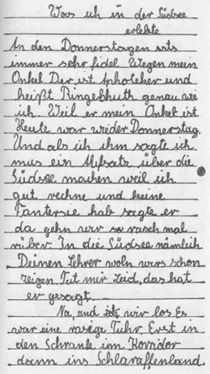 Was ich in der Südsee
erlebte
An den Donnerstagen ists
immer sehr fidel. Wegen mein
Onkel. Der ist Aphoteker und
heißt Ringelhuth genau wie
ich. Weil er mein Onkel ist.
Heute war wieder Donnerstag.
Und als ich ihm sagte ich
mus ein Aufsatz über die
Südsee machen weil ich
gut rechne und keine
Fantersie hab sagte er
da gehn wir so rasch mal
rüber. In die Südsee nämlich.
Deinen Lehrer woln wirs schon
zeigen. Tut mir Leid, das hat
er gesagt.
Na, und wir los. Es
war eine rasige Tuhr. Erst in
den Schrank im Korridor
dann ins Schlaraffenland.